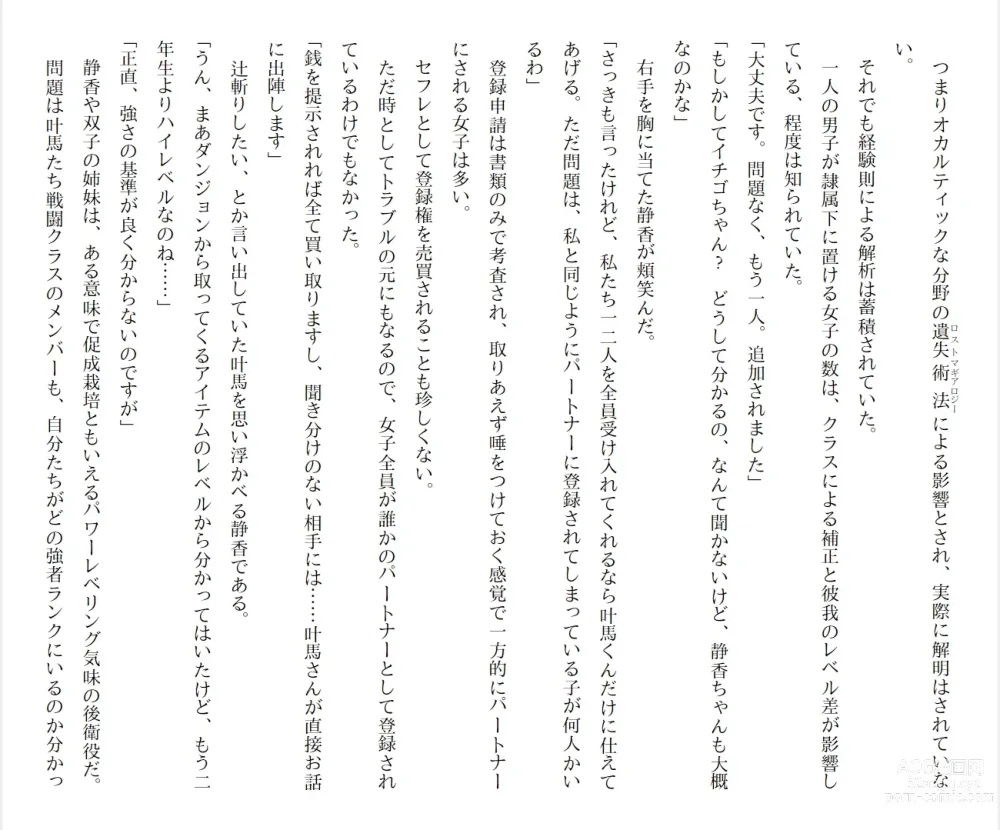 つまりオカルティックな分野の遺失術法による影響とされ、実際に解明はされていな
ロストマギアロジー
い。
それでも経験則による解析は蓄積されていた。
一人の男子が隷属下に置ける女子の数は、クラスによる補正と彼我のレベル差が影響し
ている、程度は知られていた。
「大丈夫です。問題なく、もう一人。追加されました」
「もしかしてイチゴちゃん?　どうして分かるの、なんて聞かないけど、静香ちゃんも大概
なのかな」
右手を胸に当てた静香が頬笑んだ。
「さっきも言ったけれど、私たち一二人を全員受け入れてくれるなら叶馬くんだけに仕えて
あげる。ただ問題は、私と同じようにパートナーに登録されてしまっている子が何人かい
るわ」
登録申請は書類のみで考査され、取りあえず唾をつけておく感覚で一方的にパートナー
にされる女子は多い。
セフレとして登録権を売買されることも珍しくない。
ただ時としてトラブルの元にもなるので、女子全員が誰かのパートナーとして登録され
ているわけでもなかった。
「銭を提示されれば全て買い取りますし、聞き分けのない相手には……叶馬さんが直接お話
に出陣します」
辻斬りしたい、とか言い出していた叶馬を思い浮かべる静香である。
「うん、まあダンジョンから取ってくるアイテムのレベルから分かってはいたけど、もう二
年生よりハイレベルなのね……」
「正直、強さの基準が良く分からないのですが」
静香や双子の姉妹は、ある意味で促成栽培ともいえるパワーレベリング気味の後衛役だ。
問題は叶馬たち戦闘クラスのメンバーも、自分たちがどの強者ランクにいるのか分かっ